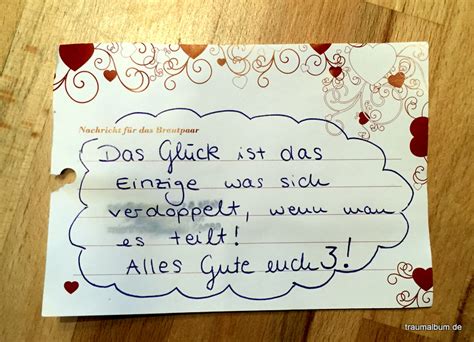 Nachricht für das Brautpaar
Das Glück ist das
Einzige was sich
verdoppelt, wenn man
es teilt!
Alles Gute euch 3!
traumalbum.de